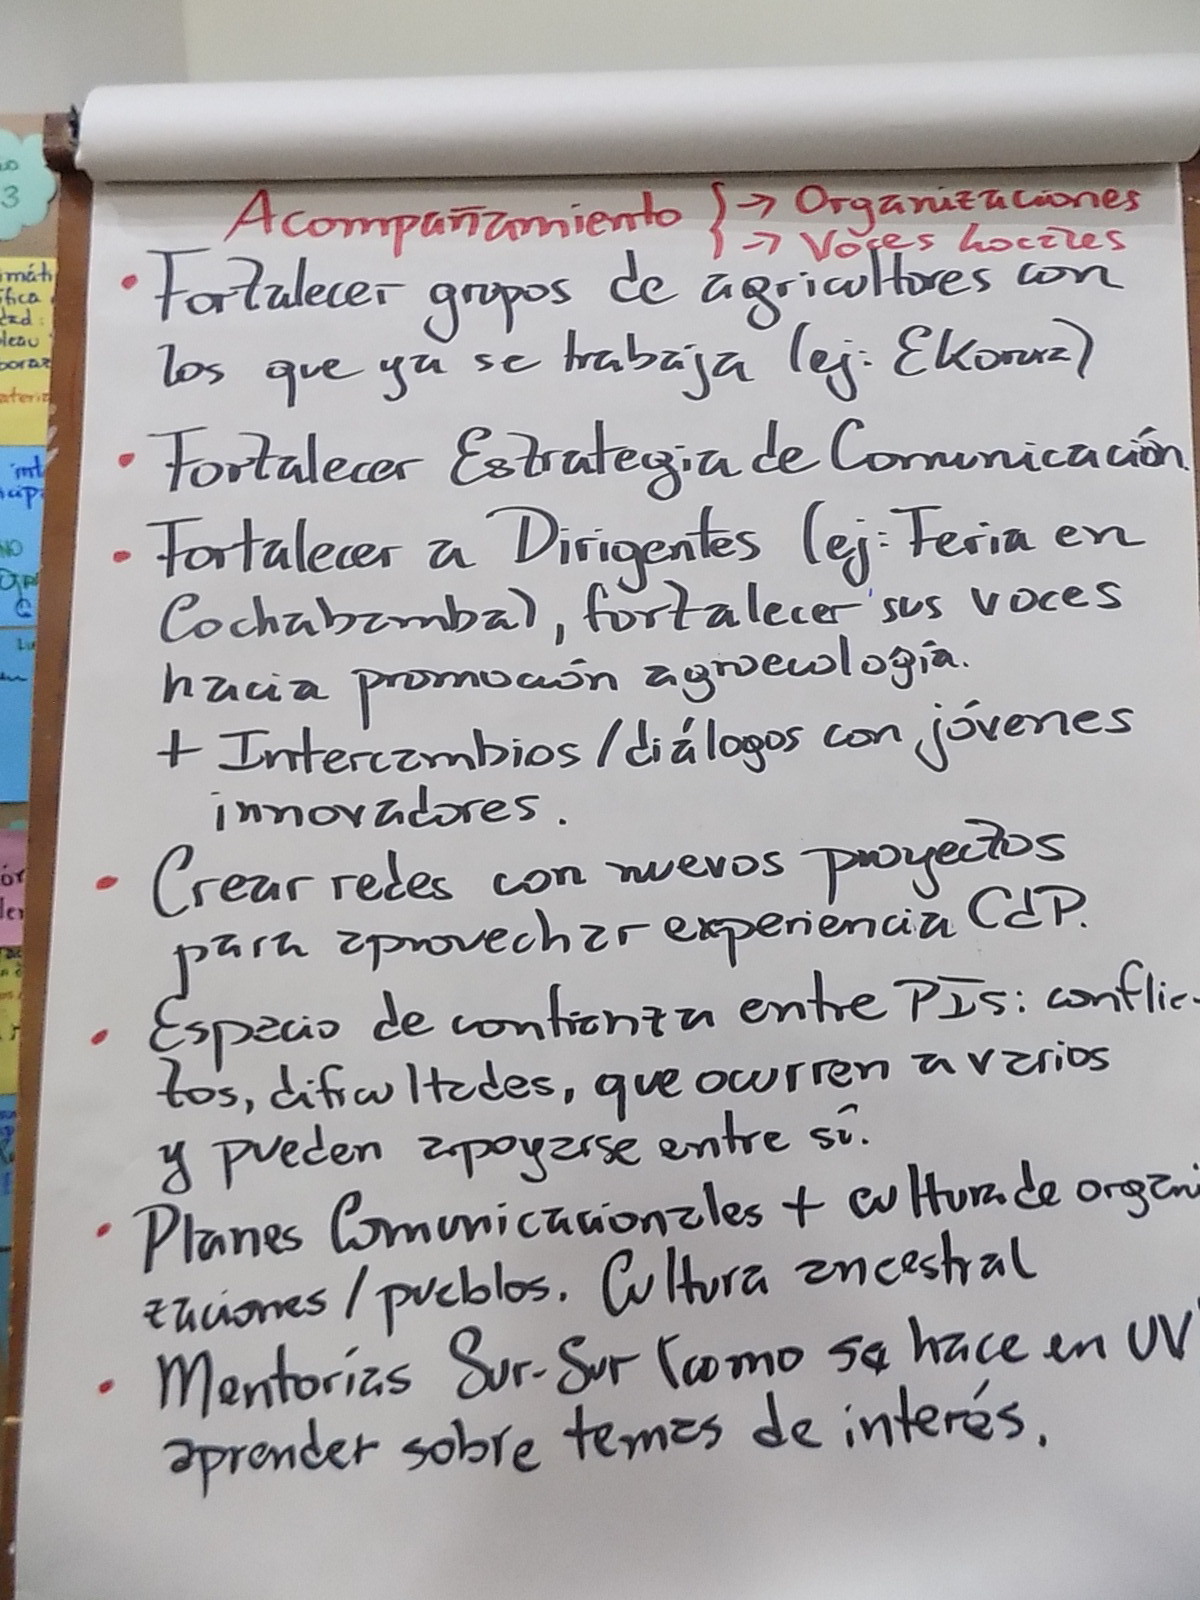 Acompañamiento } → Organizaciones
→ Voces Locales
• Fortalecer grupos de agricultores con
los que ya se trabaja (ej:
• Fortalecer Estrategia de Comunicación
• Fortalecer a Dirigentes (ej: Feria en
Cochabamba), fortalecer sus voces
hacia promoción agroecología.
+ Intercambios / diálogos con jóvenes
innovadores.
• Crear redes con nuevos proyectos
para aprovechar experiencia CdP.
• Espacio de confianza entre PIs: conflic-
tos, dificultades, que ocurren a varios
y pueden apoyarse entre sí.
• Planes Comunicacionales + cultura de organi
zaciones / pueblos. Cultura ancestral
• Mentorías Sur-Sur (como se hace en UV
aprender sobre temas de interés.
3
NO